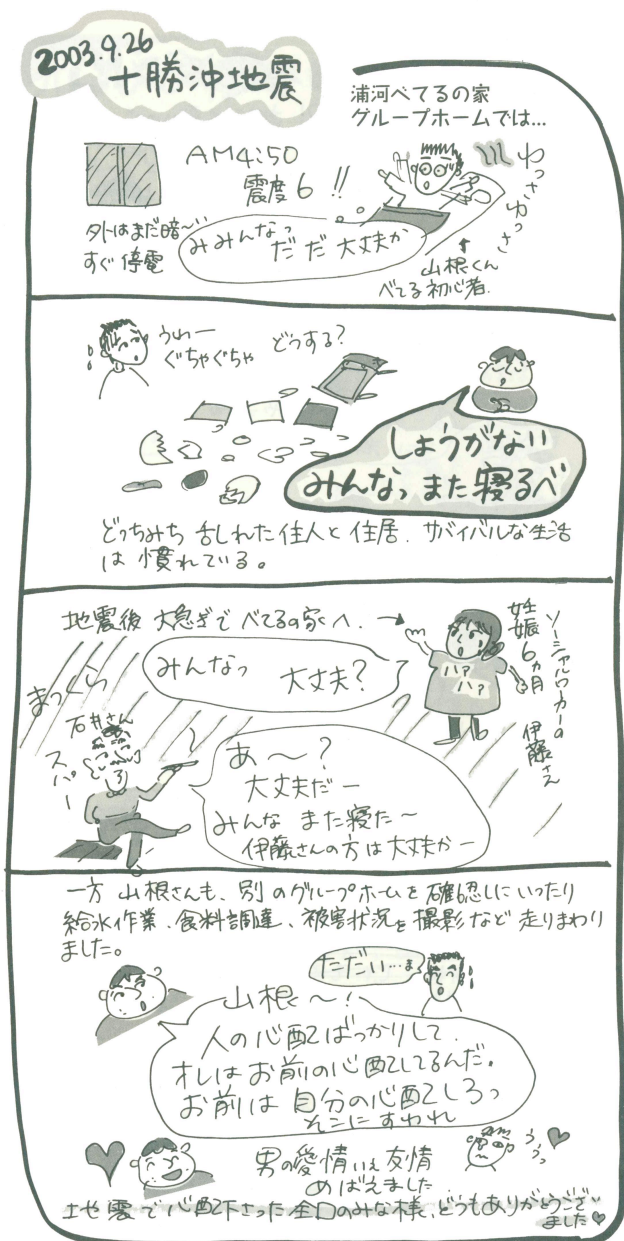 2003.9.26
十勝沖地震
浦河べてるの家
グループホームでは…
AM4:50
震度6!!
ゆっさゆっさ
外はまだ暗〜い
すぐ停電
みみんなっ
だだ大丈夫か
↑
山根くん
べてる初心者.
うわー
ぐちゃぐちゃ
どうする?
しょうがない
みんなっまた寝るべ
どっちみち乱れた住人と住居.サバイバルな生活
は慣れている。
地震後大急ぎでべてるの家へ.→
ソーシャルワーカーの伊藤さん
妊娠6ヵ月
みんなっ 大丈夫?
ハァ
ハァ
まっくら
石井さん
スパー
あ〜?
大丈夫だー
みんなまた寝た〜
伊藤さんの方は大丈夫かー
一方山根さんも、別のグループホームを確認しにいったり
給水作業、食料調達、被害状況を撮影など走りまわり
ました。
ただい…ま
山根〜!
人の心配ばっかりして.
オレはお前の心配してるんだ。
お前は自分の心配しろっ
そこにすわれ
ううっ
男の愛情いえ友情
めばえました
地震で心配下さった全国のみな様、どうもありがとうござい
ました